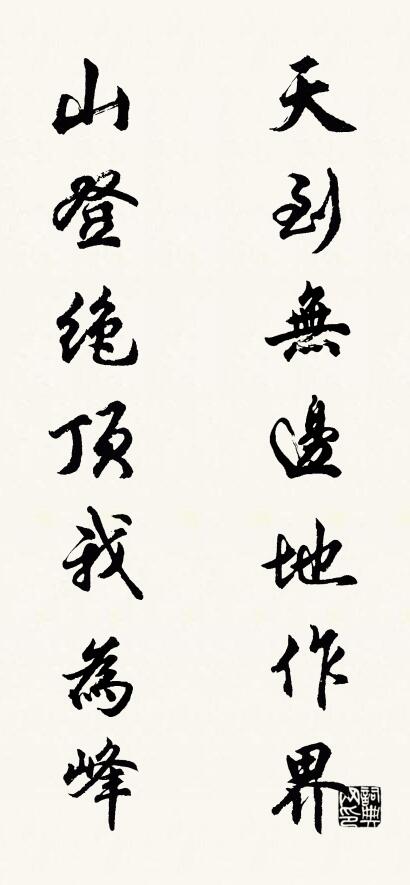 天到無邊地作界
山登絶頂我為峰